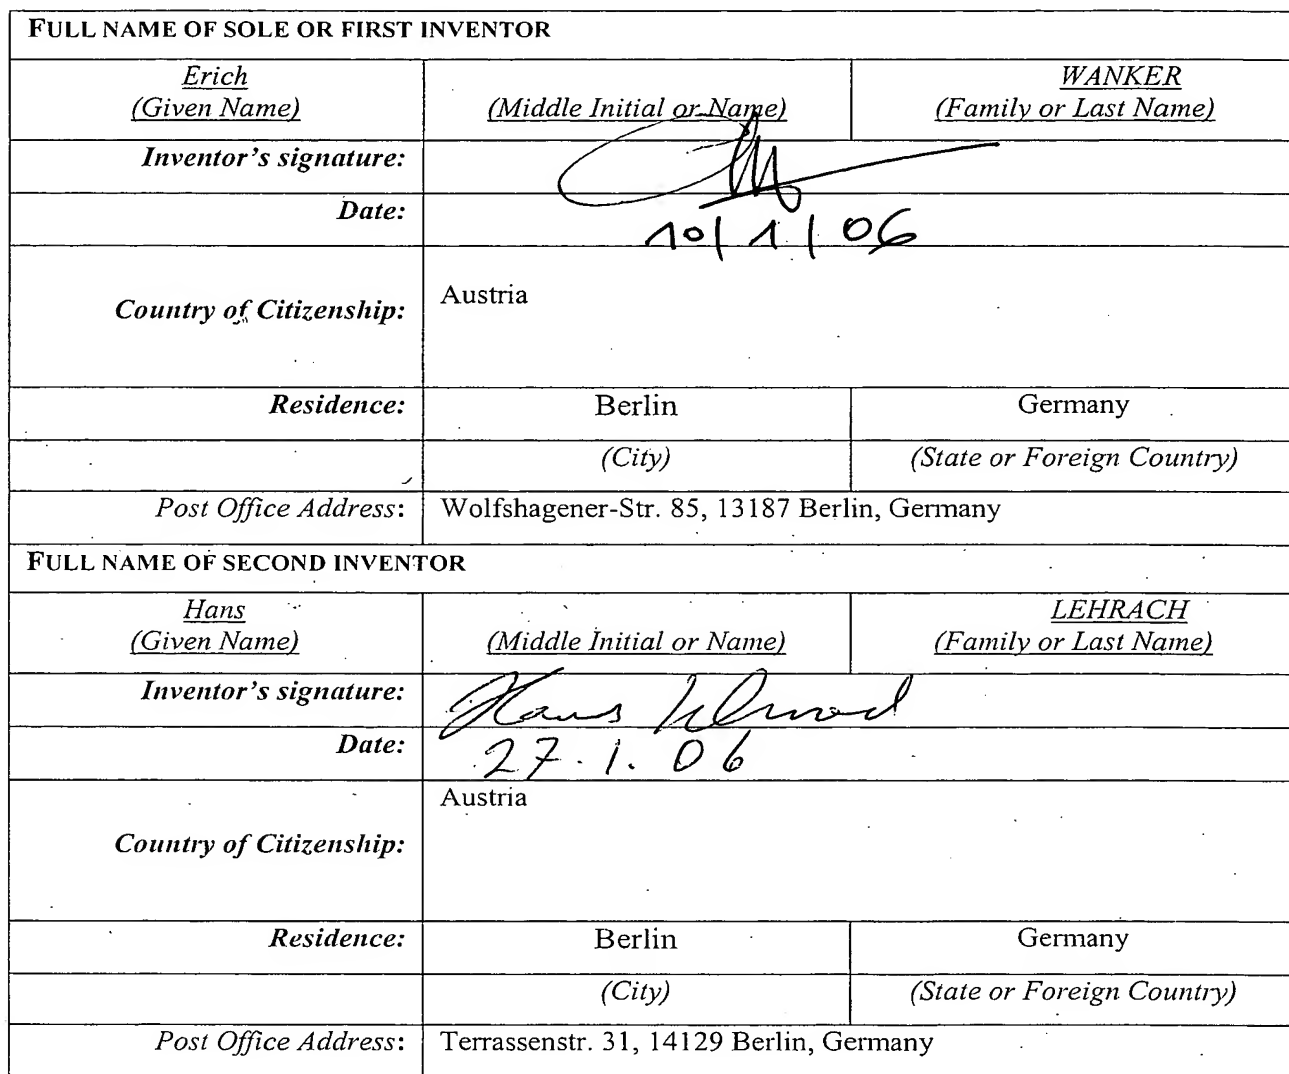 FULL NAME OF SOLE OR FIRST INVENTOR
Erich WANKER
(Given Name) (Middle Initial or Name) (Family or Last Name)
Inventor's signature:
Date: 10/1/06
Country of Citizenship: Austria
Residence: Berlin Germany
(City) (State or Foreign Country)
Post Office Address: Wolfshagener-Str. 85, 13187 Berlin, Germany
FULL NAME OF SECOND INVENTOR
Hans LEHRACH
(Given Name) (Middle Initial or Name) (Family or Last Name)
Inventor's signature: Hans Lehrach
Date: 27.1.06
Country of Citizenship: Austria
Residence: Berlin Germany
(City) (State or Foreign Country)
Post Office Address: Terrassenstr. 31, 14129 Berlin, Germany